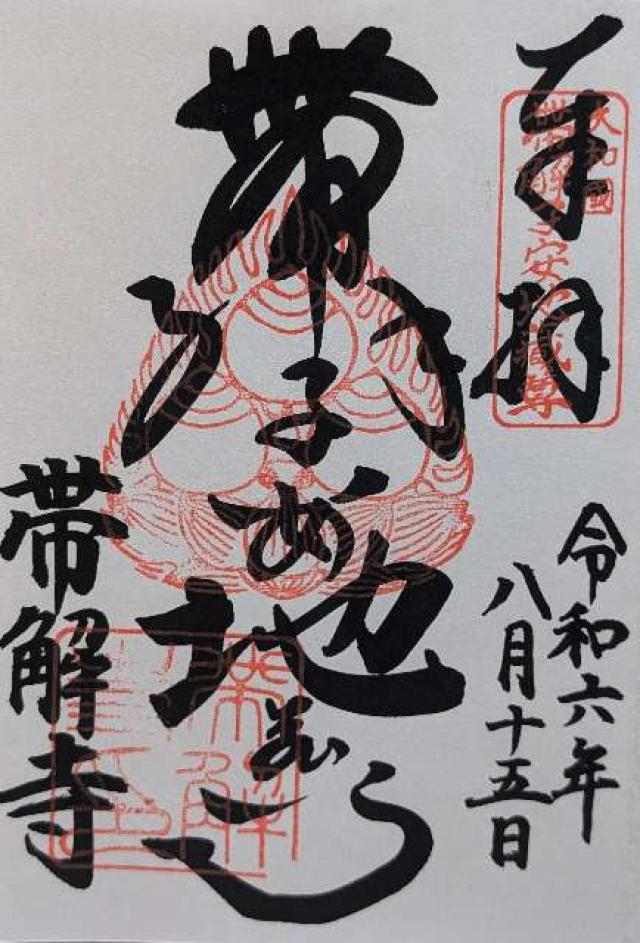 奉拝
大和國
帯解子安地蔵尊
令和六年
八月十五日
帯解子安地蔵尊
帯解寺